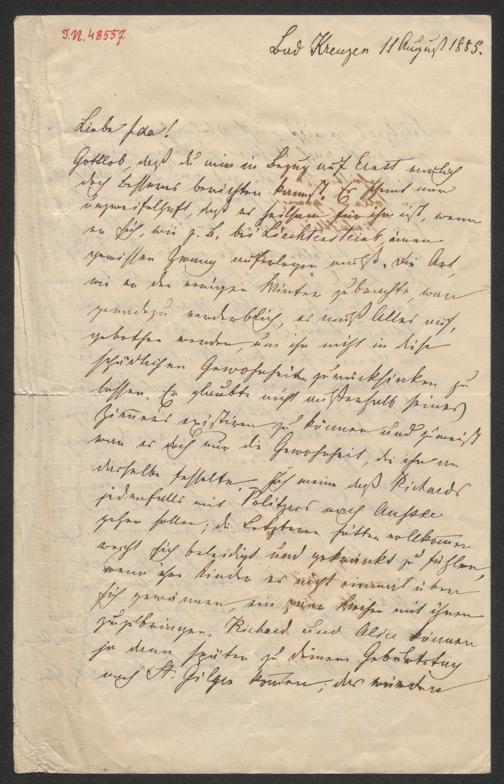 I.N. 48557
Bad Kreuzen 11 August 1885.
Liebe Ida!
Gottlob, daß du mir in Bezug auf Ernst endlich
doch besseres berichten kannst! Es scheint mir
unzweifelhaft, daß es heilsam für ihn ist, wenn
er sich, wie z. B. bei Liechtensteins, einen
gewissen Zwang auferlegen muß. Die Art,
wie er den vorigen Winter zubrachte, war
geradezu verderblich, es muß Alles auf,
gebothen werden, um ihn nicht in diese
schädlichen Gewohnheiten zurücksinken zu
lassen. Er glaubte nicht außerhalb seines
Zimmers existiren zu können und zumeist
war es doch nur die Gewohnheit, die ihn an
dasselbe fesselte. Ich meine daß Richards
jedenfalls mit Politzers nach Aussee
gehen sollen; die Letzteren hätten vollkommen
recht sich beleidigt und gekränkt zu fühlen,
wenn ihre Kinder es nicht einmal über
sich gewinnen, ein paar Wochen mit ihnen
zuzubringen. Richard und Alice können
ja dann später zu deinem Geburtstag
nach St. Gilgen kommen; das würden